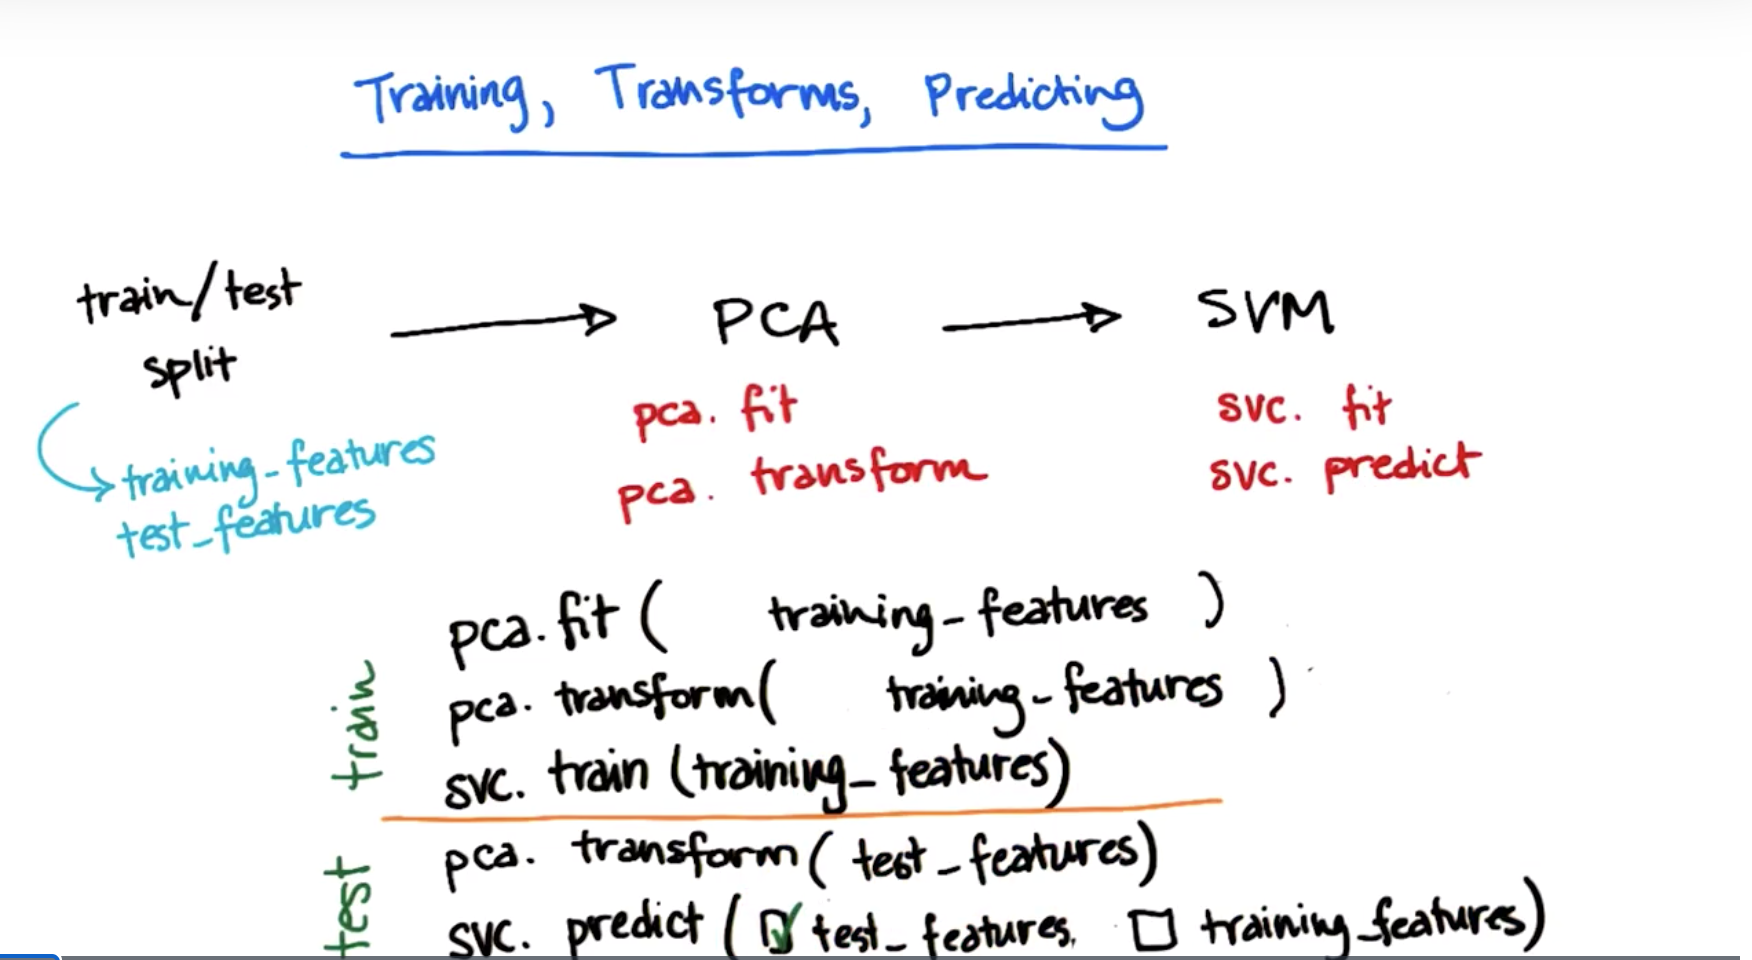 Training, Transforms, Predicting
train/test split
PCA
SVM
training_features
test_features
pca. fit
pca. transform
svc. fit
svc. predict
train
pca. fit ( training_features )
pca. transform( training_features )
svc. train (training_features)
test
pca. transform( test_features)
svc. predict ( test_features, training_features)